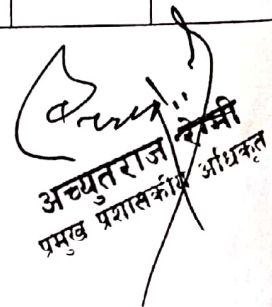 अच्युतराज रेग्मी
प्रमुख प्रशासकीय अधिकृत